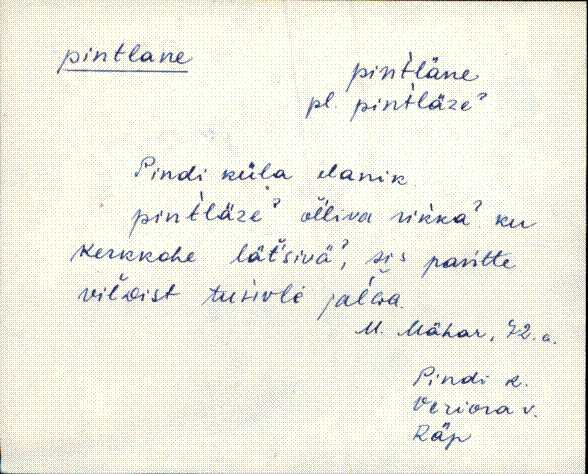 pintlane
pin̆t̀läne
pl. pin̆t̀läzeˀ
Pindi küla elanik
pin̆t̀läzeˀ ol̆liva rikkaˀ. ku
kerkkohe lät̆siväˀ, sis panitte
vil̆dist tusivle jal̆ga.
M. Mähar, 72. a.
Pindi k.
Veriora v.
Räp